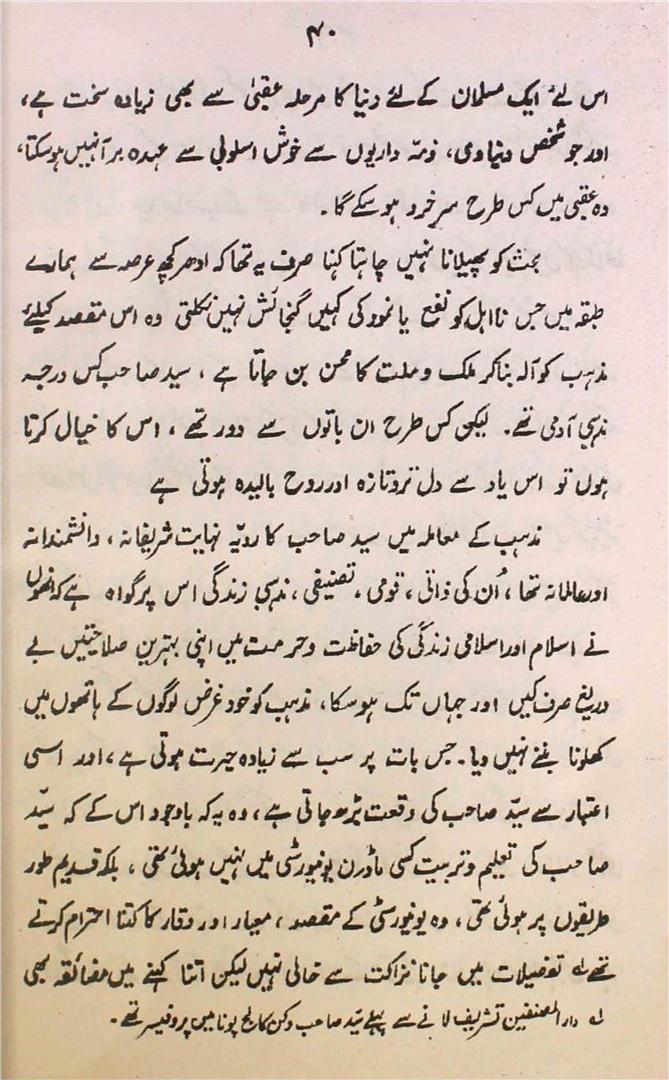 ۴۰
اس لئے ایک مسلمان کے لئے دنیا کا مرحلہ عقبیٰ سے بھی زیادہ سخت ہے،
اور جو شخص دنیاوی، ذمہ داریوں سے خوش اسلوبی سے عہدہ برآ نہیں ہو سکتا،
وہ عقبیٰ میں کس طرح سرخرو ہو سکے گا۔
بحث کو پھیلانا نہیں چاہتا کہنا صرف یہ تھا کہ ادھر کچھ عرصہ سے ہمارے
طبقہ میں جس نااہل کو نفع یا نمود کی کہیں گنجائش نہیں نکلتی وہ اس مقصد کیلئے
مذہب کو آلہ بنا کر ملک و ملت کا محسن بن جاتا ہے، سید صاحب کس درجہ
مذہبی آدمی تھے۔ لیکن کس طرح ان باتوں سے دور تھے، اس کا خیال کرتا
ہوں تو اس یاد سے دل تروتازہ اور روح بالیدہ ہوتی ہے
مذہب کے معاملہ میں سید صاحب کا رویّہ نہایت شریفانہ، دانشمندانہ
اور عالمانہ تھا، اُن کی ذاتی، قومی، تصنیفی، مذہبی زندگی اس پر گواہ ہے کہ انھوں
نے اسلام اور اسلامی زندگی کی حفاظت و حرمت میں اپنی بہترین صلاحیتیں بے
دریغ صرف کیں اور جہاں تک ہو سکا، مذہب کو خود غرض لوگوں کے ہاتھوں میں
کھلونا بننے نہیں دیا۔ جس بات پر سب سے زیادہ حیرت ہوتی ہے، اور اسی
اعتبار سے سیّد صاحب کی وقعت بڑھ جاتی ہے، وہ یہ کہ باوجود اس کے کہ سیّد
صاحب کی تعلیم و تربیت کسی ماڈرن یونیورسٹی میں نہیں ہوئی تھی، بلکہ قدیم طور
طریقوں پر ہوئی تھی، وہ یونیورسٹی کے مقصد، معیار اور وقار کا کتنا احترام کرتے
تھے لہ تفصیلات میں جانا نزاکت سے خالی نہیں لیکن اتنا کہنے میں مضائقہ بھی
لہ دار المصنفین تشریف لانے سے پہلے سیّد صاحب دکن کالج پونا میں پروفیسر تھے۔